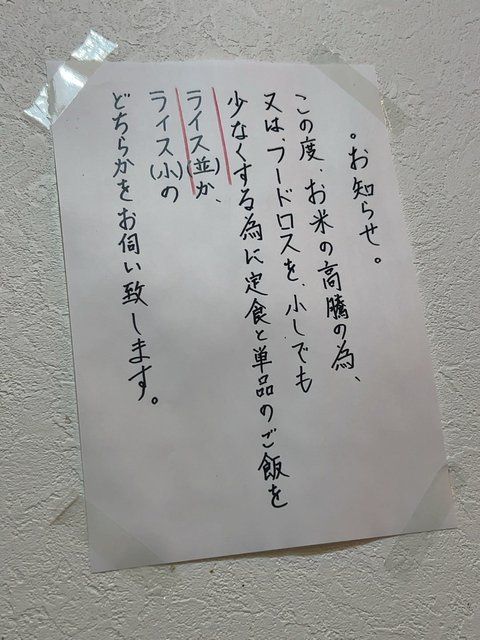 。お知らせ。
この度、お米の高騰の為、
又は、フードロスを、小しでも
少なくする為に定食と単品のご飯を
ライス(並)か、
ライス(小)の
どちらかをお伺い致します。